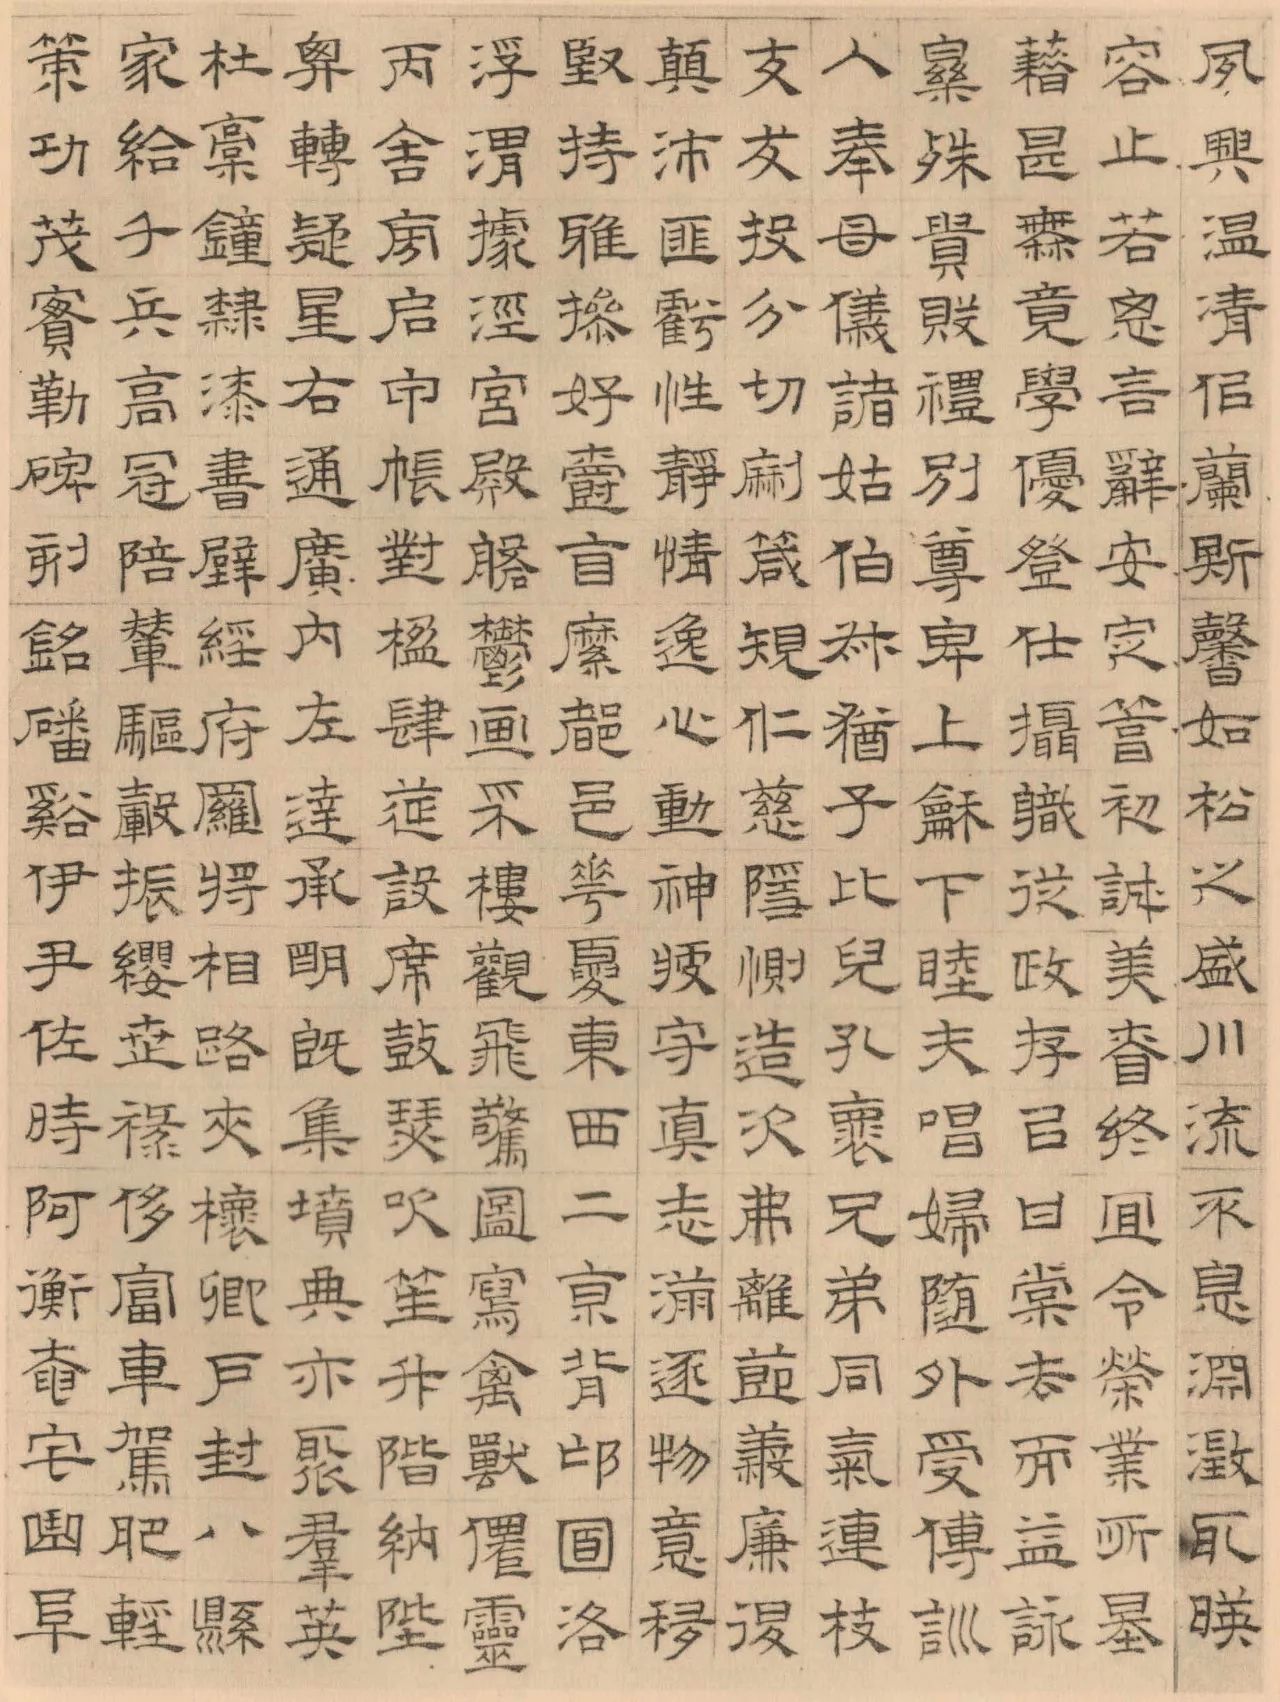 夙興温凊佀蘭斯馨如松之盛川流不息淵澂取暎
容止若思言辭安定篤初誠美昚終宜令榮業所基
藉甚無竟學優登仕攝職從政存㠯甘棠去而益詠
樂殊貴賤禮別尊卑上龢下睦夫唱婦随外受傅訓
人奉母儀諸姑伯叔猶子比兒孔褱兄弟同氣連枝
交友投分切劘箴規仁慈隱惻造次弗離節義廉退
顛沛匪虧性靜情逸心動神疲守真志滿逐物意移
堅持雅操好爵自縻都邑華夏東西二京背邙面洛
浮渭據涇宮殿盤鬱画采樓觀飛驚圖寫禽獸僊靈
丙舍㑄启甲帳對楹肆筵設席鼓瑟吹笙升階納陛
弁轉疑星右通廣内左達承明既集墳典亦聚羣英
杜稾鐘隸漆書壁經府羅將相路夾槐卿戶封八縣
家給千兵高冠陪輦驅轂振纓世祿侈富車駕肥輕
策功茂實勒碑刻銘磻谿伊尹佐時阿衡奄宅曲阜